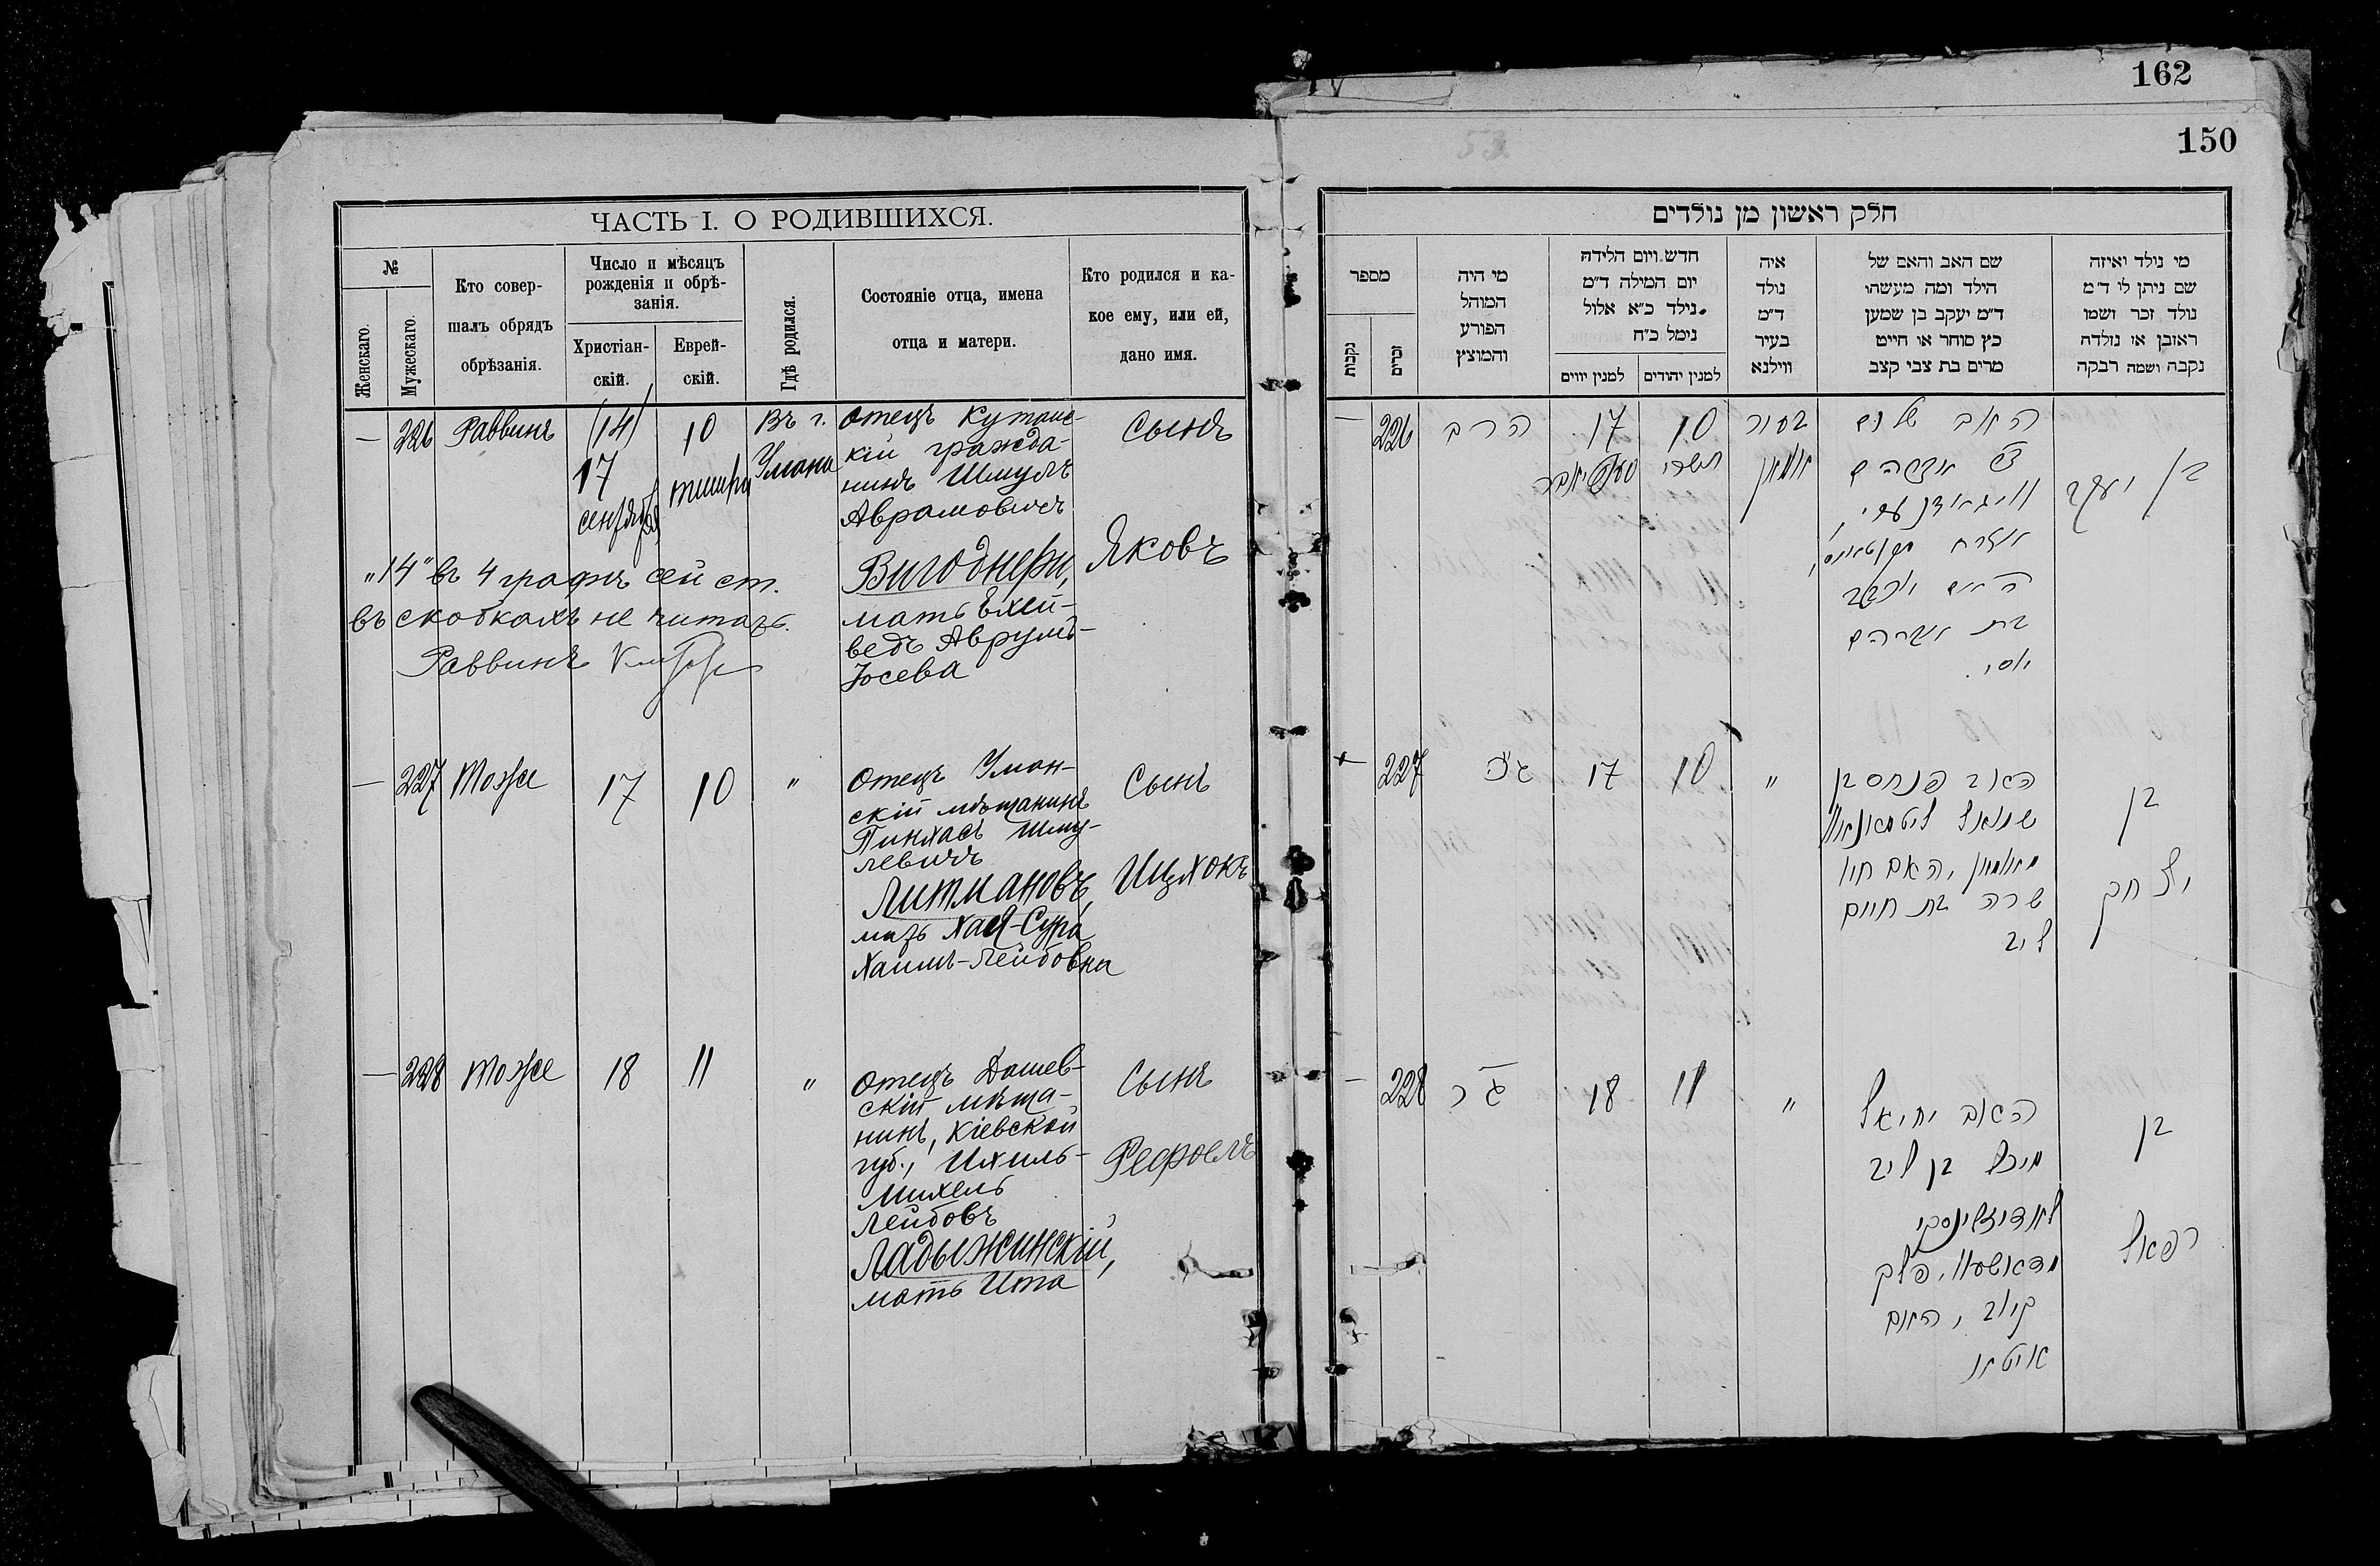 162
150
ЧАСТЬ I. О РОДИВШИХСЯ.
№
Женскаго.
Мужескаго.
Кто совер-
шалъ обрядъ
обрѣзанія.
Число и мѣсяцъ
рожденія и обрѣ-
занія.
Христіан-
скій.
Еврей-
скій.
Гдѣ родился.
Состояніе отца, имена
отца и матери.
Кто родился и ка-
кое ему, или ей,
дано имя.
— 226 Раввинъ
(14)
17
сентября
10
тишри
Въ г.
Умани
отецъ Кутаис-
кій гражда-
нинъ Шмулъ
Аврамовичъ
Вигоднеръ,
мать
Аврумъ-
Іосева
Сынъ
Яковъ
„14" въ 4 графѣ сей ст.
въ скобкахъ не читать.
Раввинъ
— 227 Тоже 17 10 "
Отецъ Уман-
скій мѣщанинъ
Пинхасъ Шму-
левичъ
Литмановъ,
мать Хая-Сура
Хаимъ-Лейбовна
Сынъ
Ицхокъ
— 228 Тоже 18 11 "
Отецъ Дашев-
скій мѣща-
нинъ, Кіевской
губ., Ихиль-
Михель
Лейбовъ
Ладыжинскій,
мать Ита
Сынъ
Рефоелъ
חלק ראשון מן נולדים
מספר
נקבות
זכרים
מי היה
המוהל
הפורע
והמוצץ
חדש ויום הלידה
יום המילה ד״מ
נולד כ״א אלול
נימל כ״ח
למנין יווים
למנין יהודים
איה
נולד
ד״מ
בעיר
ווילנא
שם האב והאם של
הילד ומה מעשהו
ד״מ יעקב בן שמען
כץ סוחר או חייט
מרים בת צבי קצב
מי נולד ואיזה
שם ניתן לו ד״מ
נולד זכר ושמו
ראובן או נולדה
נקבה ושמה רבקה
— 226 הרב
17
10
תשרי
אומאן
האב
בת אברהם
יוסי.
בן יעקב
227
17 10 "
האב פנחס בן
שמואל ליטמאנאוו
מאומאן, האם חיו
שרה בת חיים
ליב
בן
יצחק
— 228
18 11 "
האב יחיאל
מיכל בן ליב
לאדיזשינסקי
מדאשעוו, פלך
קיוב, האם
איטא
בן
רפאל